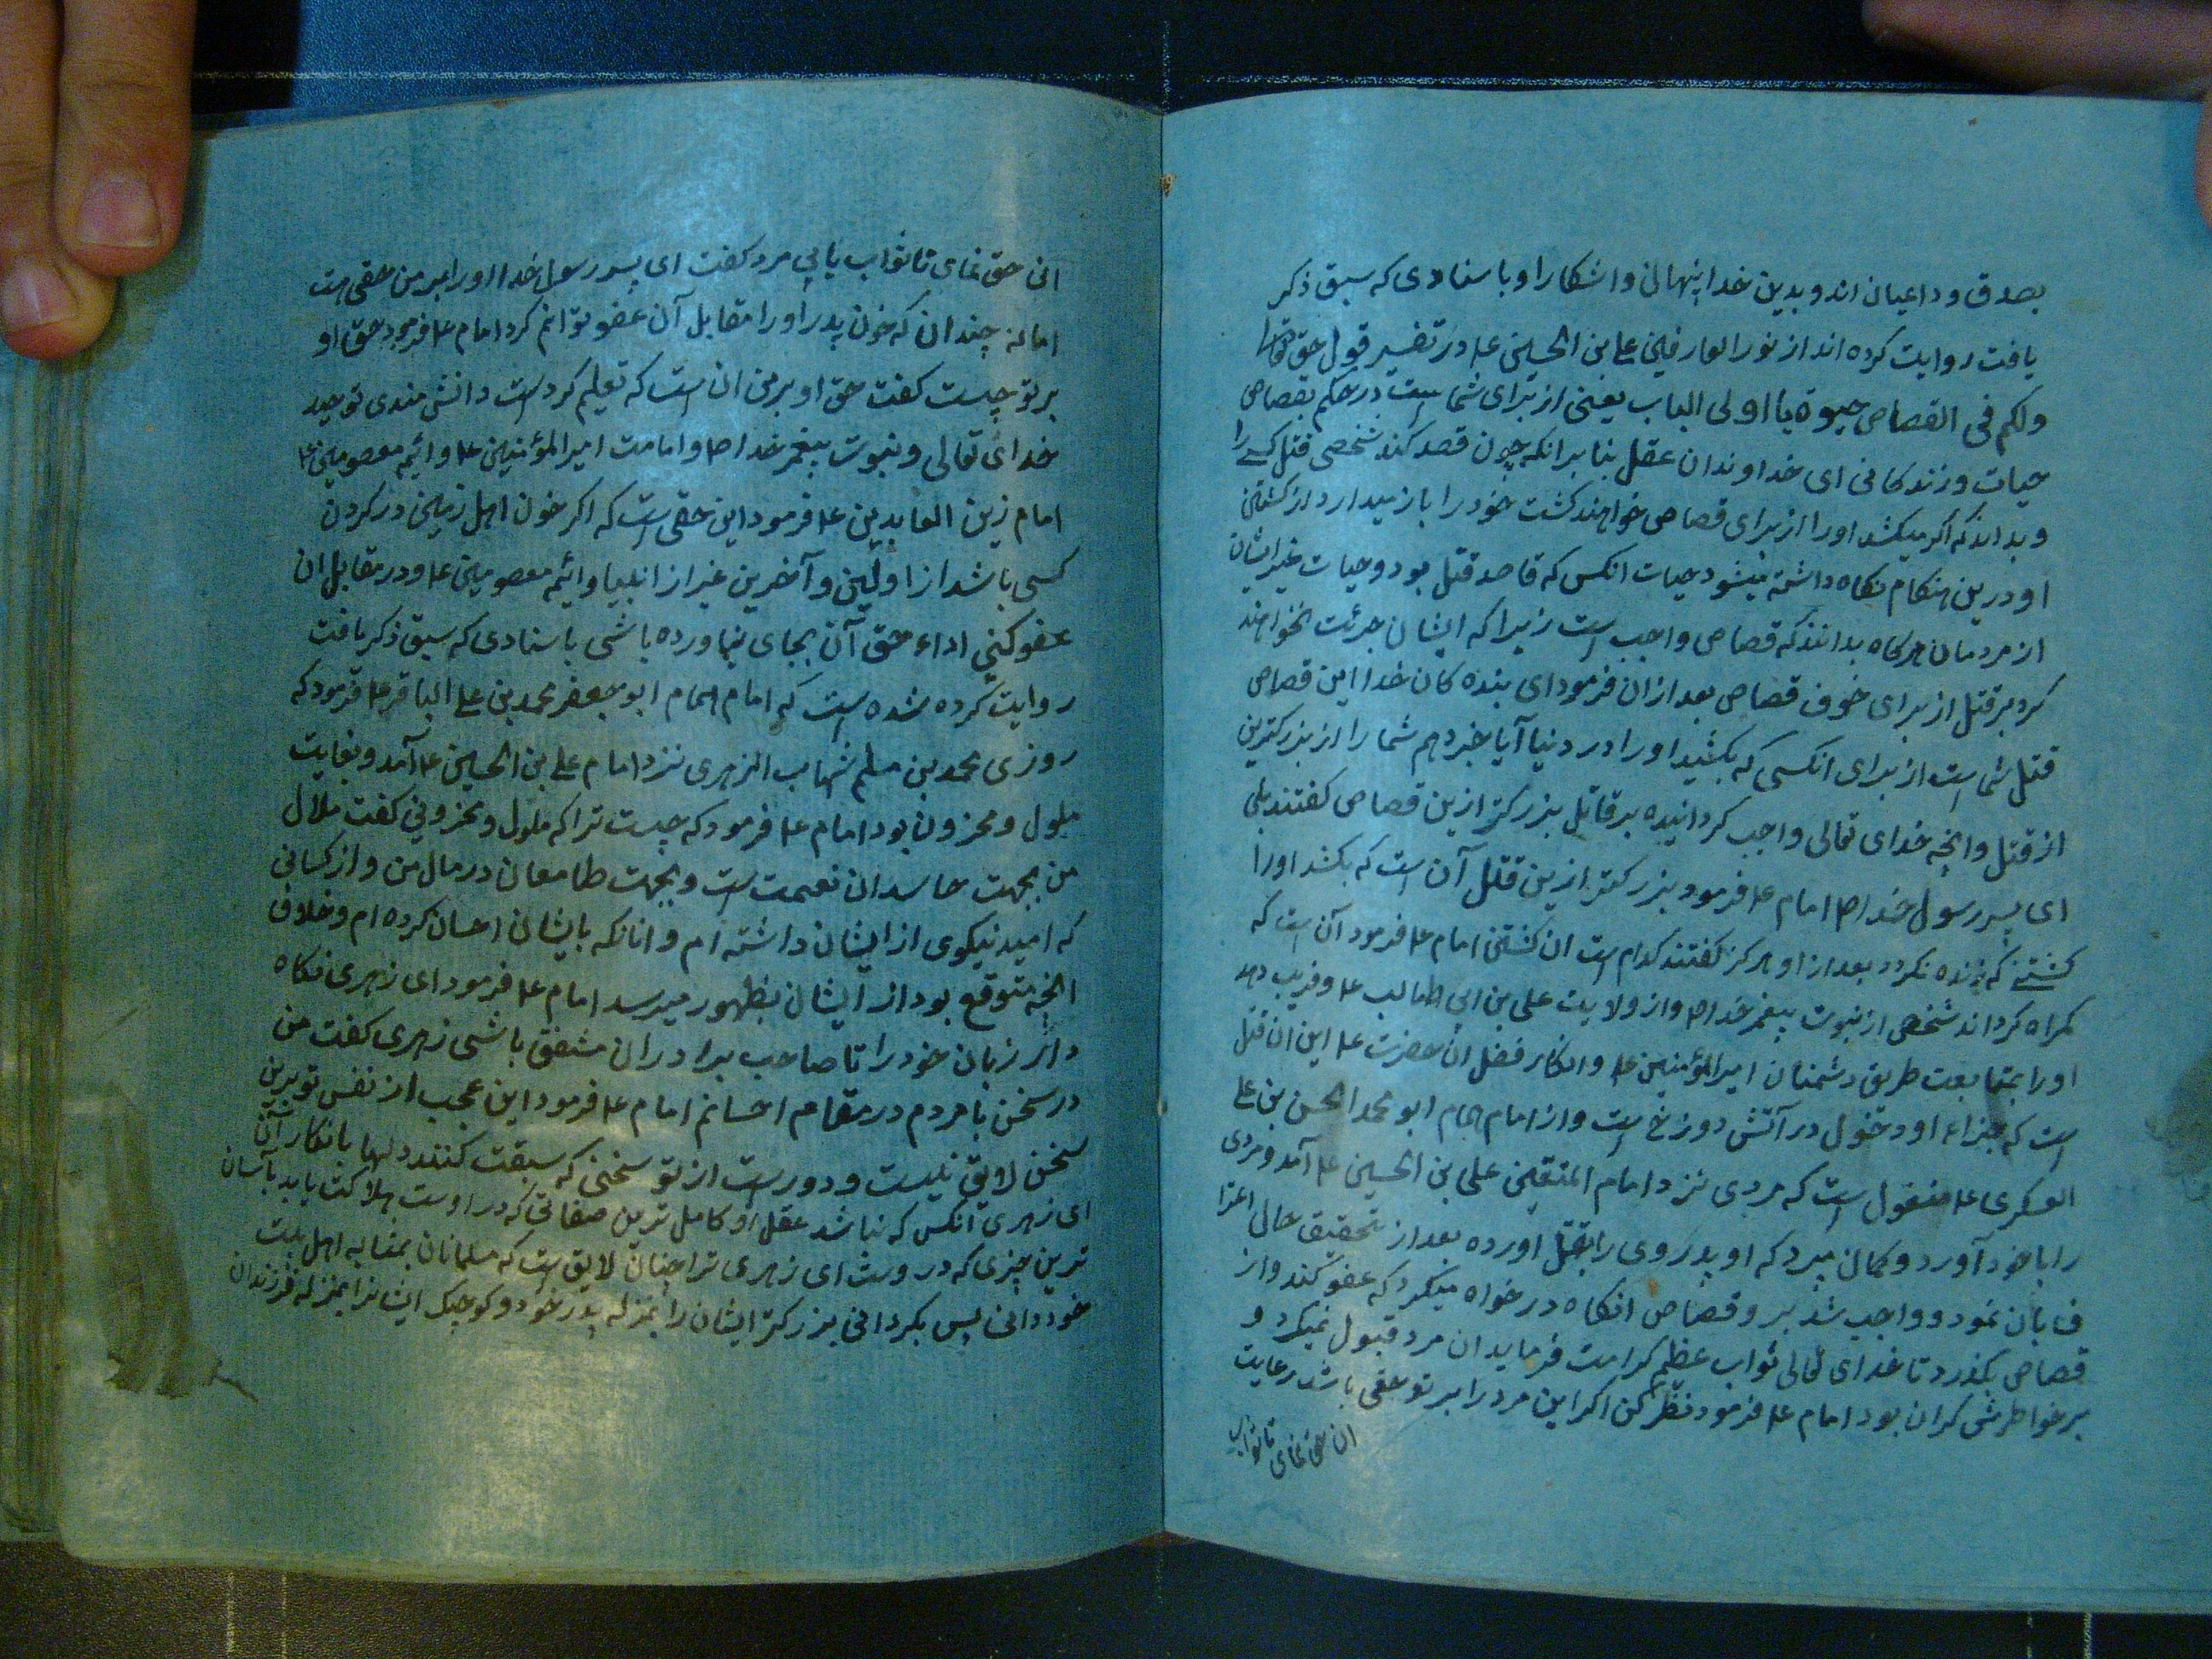 بصدق و داعیان اند و بدین خدا پنهان و اشکارا و باسنادی که سبق ذکر
یافت روایت کرده اند از نور العارفین علی بن الحسین ع در تفسیر قول حق تعالی
ولکم فی القصاص حیوة یا اولی الباب یعنی از برای شما است در حکم بقصاص
حیات و زندکانی ای خداوندان عقل بنا برانکه چون قصد کند شخصی قتل کسی را
و بداند که اکر میکشد او را از برای قصاص خواهند کشت خود را باز میدارد از کشتن
او درین هنکام نکاه داشته میشود حیات انکس که قاصد قتل بود و حیات غیر ایشان
از مردمان هرکاه بدانند که قصاص واجب است زیرا که ایشان جرئت نخواهند
کرد بر قتل از برای خوف قصاص بعد از ان فرمود ای بنده کان خدا این قصاص
قتل شما است از برای انکسی که بکشید او را در دنیا آیا خبر دهم شما را از بزرکترین
از قتل و انچه خدای تعالی واجب کردانیده بر قاتل بزرکتر ازین قصاص کفتند بلی
ای پسر رسول خدا ص امام ع فرمود بزرکتر ازین قتل آن است که بکشد او را
کشتنی که زنده نکردد بعد از او هرکز کفتند کدام است ان کشتن امام ع فرمود آن است که
کمراه کرداند شخصی از نبوت پیغمبر خدا ص و از ولایت علی بن ابی طالب ع و فریب دهد
او را بمتابعت طریق دشمنان امیر المؤمنین ع و انکار فضل ان حضرت ع این ان قتل
است که جزاء او دخول در آتش دوزخ است و از امام همام ابو محمد الحسن بن علی
العسکری ع منقول است که مردی نزد امام المتقین علی بن الحسین ع آمد و مردی
را با خود آورد و کمان میبرد که او پدر وی را بقتل اورده بعد از تحقیق حالی اعترا
ف بان نمود و واجب شد بر و قصاص انکاه درخواه میکرد که عفو کند و از
قصاص بکذرد تا خدای تعالی ثواب عظیم کرامت فرماید ان مرد قبول نمیکرد و
برخواطرش کران بود امام ع فرمود نظر کن اکر این مرد را بر تو حقی باشد رعایت
ان حق نمای تا ثواب
ان حق نمای تا ثواب یابی مرد کفت ای پسر رسول خدا او را بر من حقی هست
اما نه چندان که خون پدر او را مقابل آن عفو توانم کرد امام ع فرمود حق او
بر تو چیست کفت حق او بر من ان است که تعلیم کرد است دانش مندی توحید
خدای تعالی و نبوت پیغمبر خدا ص و امامت امیر المؤمنین ع و ائیمه معصومین ع
امام زین العابدین ع فرمود این حقی است که اکر خون اهل زمین در کردن
کسی باشد از اولین و آخرین غیر از انبیا و ائیمه معصومین ع و در مقابل ان
عفو کنی اداء حق آن بجای نیاورده باشی باسنادی که سبق ذکر یافت
روایت کرده شده است که امام همام ابو جعفر محمد بن علی الباقر ع فرمود که
روزی محمد بن مسلم شهاب الزهری نزد امام علی بن الحسین ع آمد و بغایت
ملول و محزون بود امام ع فرمود که چیست ترا که ملول و محزونی کفت ملال
من بجهت حاسدان نعمت است و بجهت طامعان در مال من و از کسانی
که امید نیکوی از ایشان داشته ام و انانکه بایشان احسان کرده ام و خلاف
انچه متوقع بود از ایشان بظهور میرسد امام ع فرمود ای زهری نکاه
دار زبان خود را تا صاحب برادران مشفق باشی زهری کفت من
در سخن با مردم در مقام احسانم امام ع فرمود این عجب از نفس تو برین
سخن لایق نیست و دور است از تو سخنی که سبقت کنند دلها بانکار آن
ای زهری انکس که نباشد عقل او کامل ترین صفاتی که در اوست هلاکت یابد بآسان
ترین چیزی که در وست ای زهری ترا چنان لایق است که مسلمانان بمثابه اهل بیت
خود دانی پس بکردانی بزرکتر ایشان را بمنزله پدر خود و کوچک ایشانرا بمنزله فرزندان